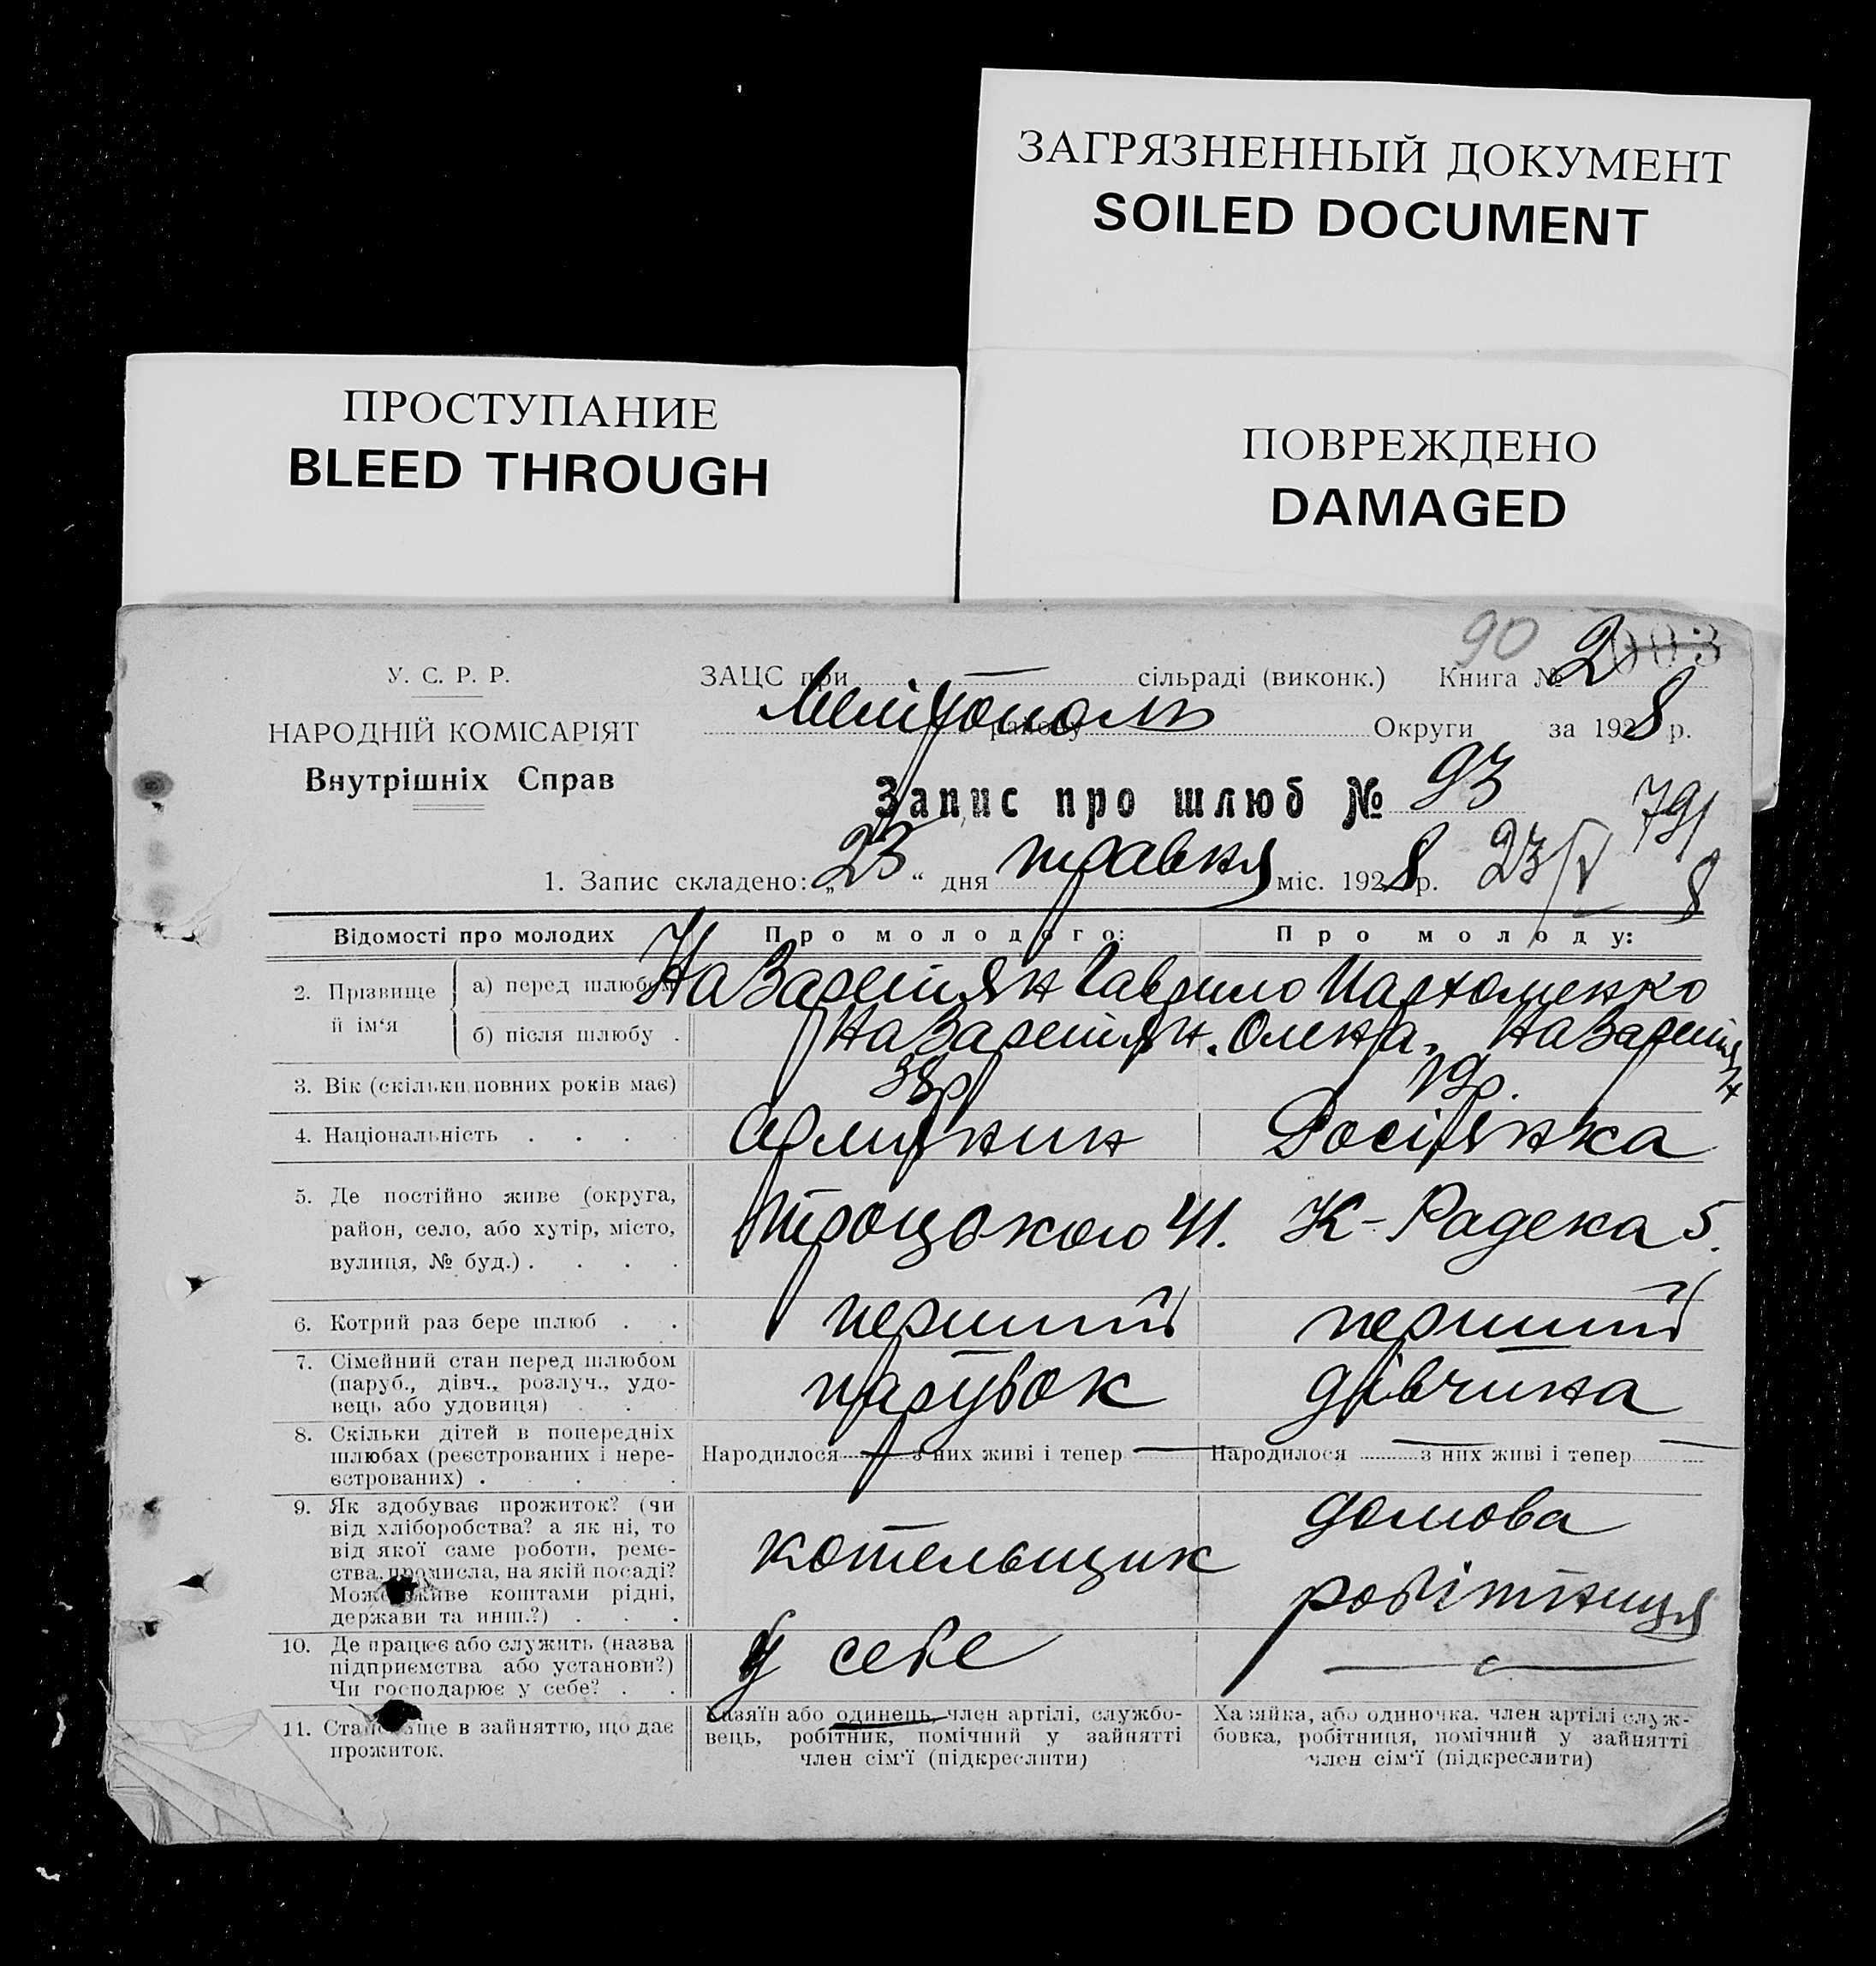 ЗАГРЯЗНЕННЫЙ ДОКУМЕНТ
SOILED DOCUMENT
ПРОСТУПАНИЕ
BLEED THROUGH
ПОВРЕЖДЕНО
DAMAGED
90 2 003
У. С. Р. Р.
НАРОДНІЙ КОМІСАРІЯТ
Внутрішніх Справ
ЗАЦС при — сільраді (виконк.) Книга №
Мелітополь району Округи за 1928 р.
Запис про шлюб № 93
791
1. Запис складено: „23“ дня травня міс. 1928 р. 23/V 8
Відомості про молодих
Про молодого:
Про молоду:
2. Прізвище й ім‘я
а) перед шлюбом
Назаретян Гаврило Пархоменко
б) після шлюбу .
Назаретян. Олена. Назаретян
3. Вік (скільки повних років має)
38р 19р.
4. Національність . . . .
Армянин Росіянка
5. Де постійно живе (округа,
район, село, або хутір, місто,
вулиця, № буд.) . . . .
Троцького 41. К-Радека 5.
6. Котрий раз бере шлюб . .
перший перший
7. Сімейний стан перед шлюбом
(паруб., дівч., розлуч., удо-
вець або удовиця) . . .
парубок дівчина
8. Скільки дітей в попередніх
шлюбах (реєстрованих і нере-
єстрованих) .
Народилося — з них живі і тепер —
Народилося — з них живі і тепер —
9. Як здобуває прожиток? (чи
від хліборобства? а як ні, то
від якої саме роботи, реме-
ства, промисла, на якій посаді?
Може живе коштами рідні,
держави та инш.?) . . .
котельщик
домова
робітниця
10. Де працює або служить (назва
підприємства або установи?)
Чи господарює у себе? . .
у себе —
11. Становище в зайняттю, що дає
прожиток.
Хазяїн або одинець, член артілі, службо-
вець, робітник, помічний у зайнятті
член сім‘ї (підкреслити)
Хазяйка, або одиночка. член артілі служ-
бовка, робітниця, помічний у зайнятті
член сім‘ї (підкреслити)